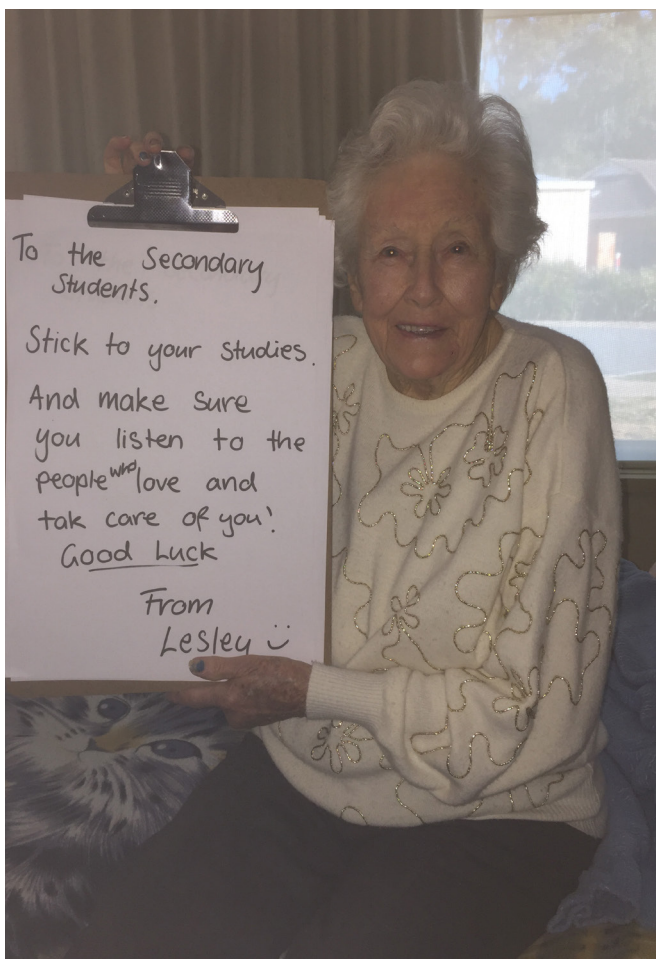 To the Secondary
Students.
Stick to your studies.
And make sure
you listen to the
people who love and
tak care of you!
Good Luck
From
Lesley ¨⌣